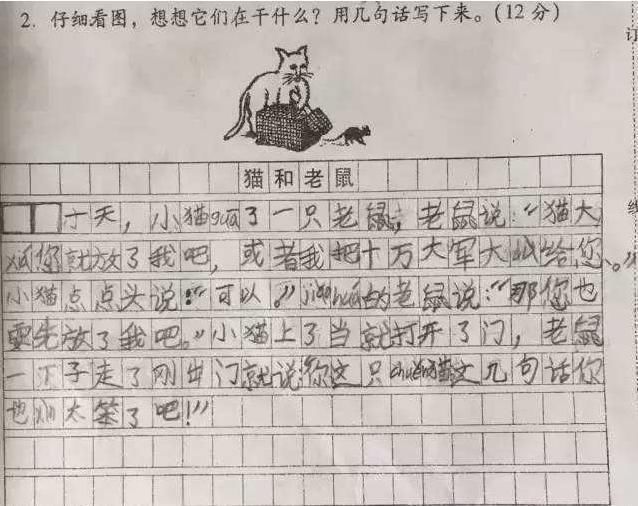 2. 仔细看图，想想它们在干什么？用几句话写下来。(12 分)
订
猫和老鼠
一天，小猫gua了一只老鼠，老鼠说：“猫大
您就放了我吧，或者我把十万大军大给您。”
线
小猫点点头说：“可以。”jiao hua的老鼠说：“那您也
要先放了我吧。”小猫上了当就打开了门，老鼠
一下子走了刚出门就说：你这只chun猫这几句话你
也太笨了吧！”